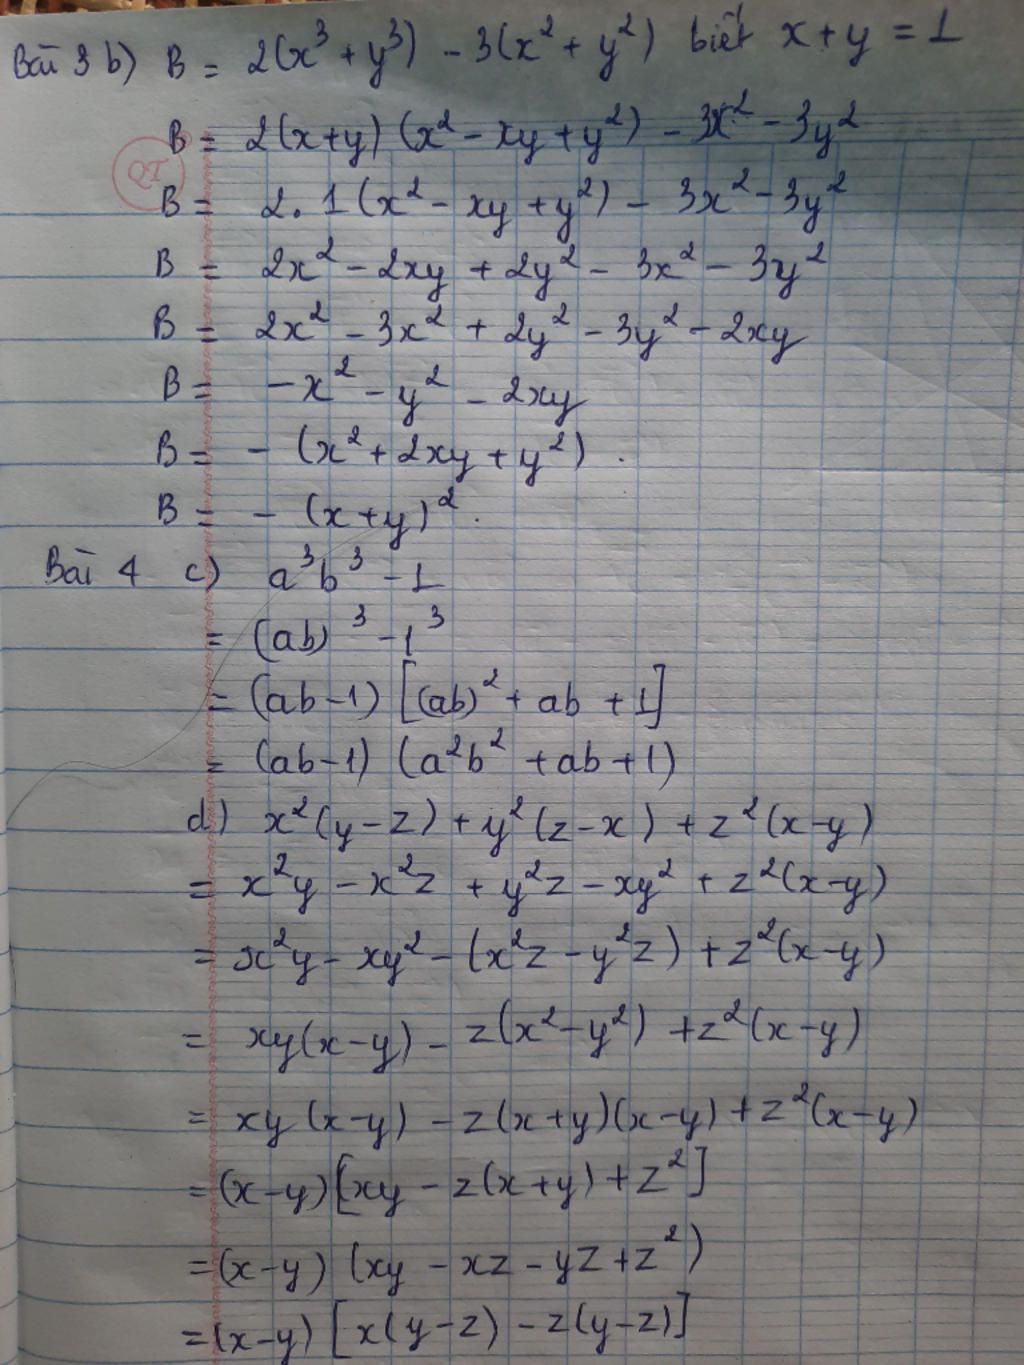 Bài 3 b) B = 2(x³ + y³) - 3(x² + y²) biết x + y = 1
B = 2(x+y)(x² - xy + y²) - 3x² - 3y²
QT
B = 2.1(x² - xy + y²) - 3x² - 3y²
B = 2x² - 2xy + 2y² - 3x² - 3y²
B = 2x² - 3x² + 2y² - 3y² - 2xy
B = -x² - y² - 2xy
B = -(x² + 2xy + y²).
B = -(x + y)².
Bài 4 c) a³b³ - 1
= (ab)³ - 1³
= (ab-1)[(ab)² + ab + 1]
= (ab-1)(a²b² + ab + 1)
d) x²(y-z) + y²(z-x) + z²(x-y)
= x²y - x²z + y²z - xy² + z²(x-y)
= x²y - xy² - (x²z - y²z) + z²(x-y)
= xy(x-y) - z(x²-y²) + z²(x-y)
= xy(x-y) - z(x+y)(x-y) + z²(x-y)
= (x-y)[xy - z(x+y) + z²]
= (x-y)(xy - xz - yz + z²)
= (x-y)[x(y-z) - z(y-z)]